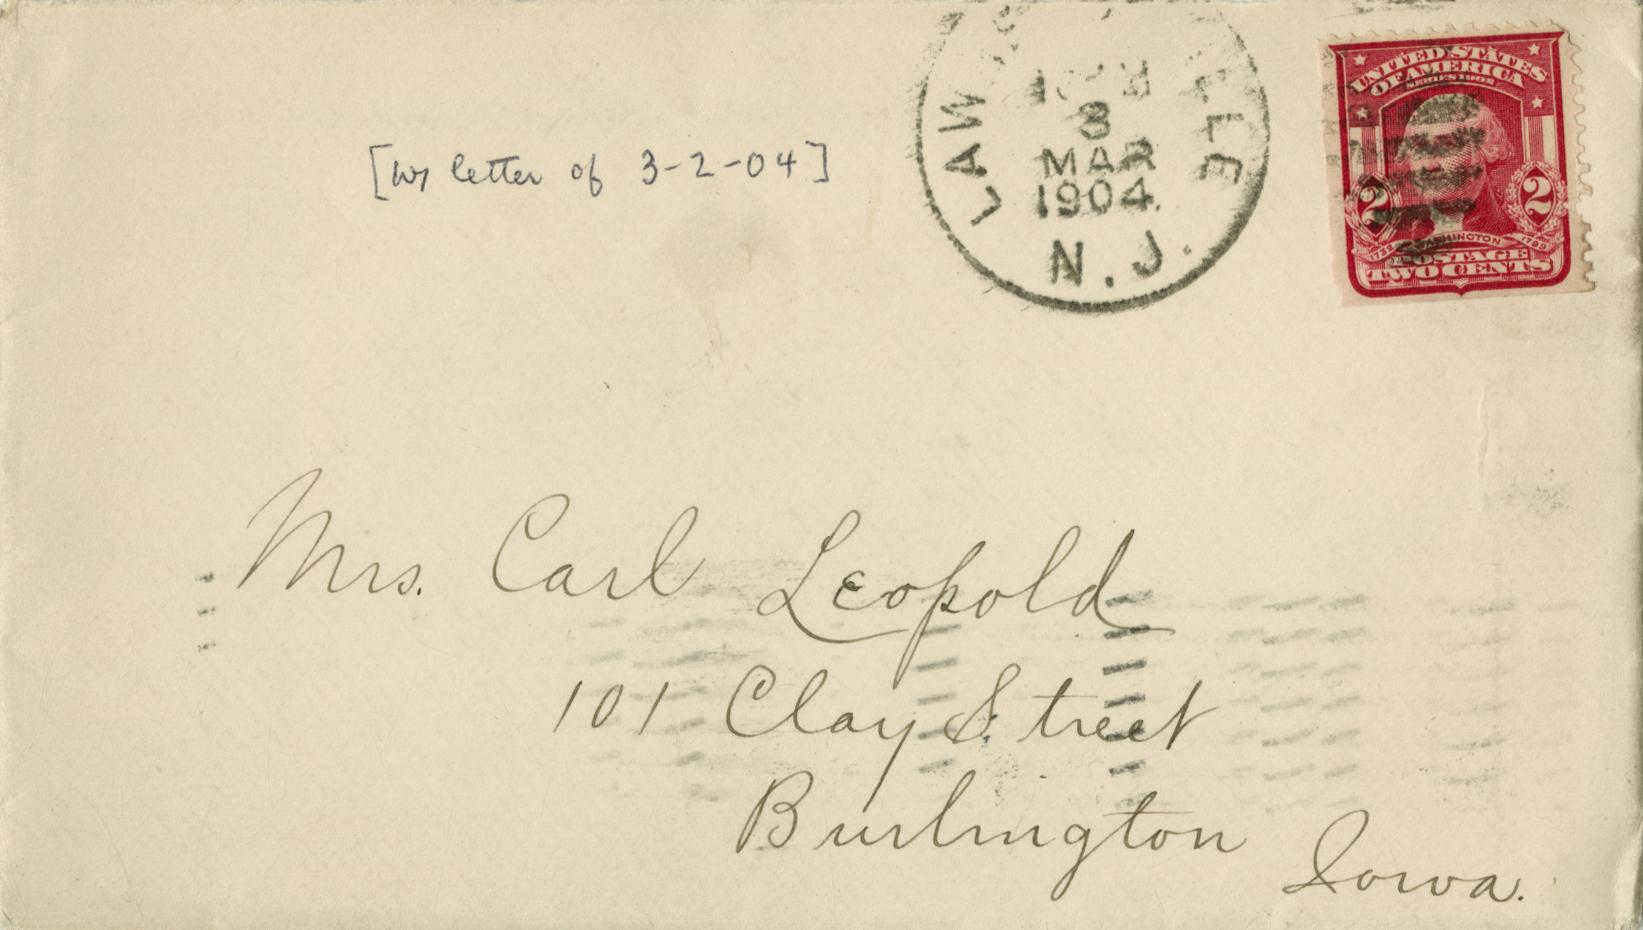 [w/ letter of 3-2-04]
3
MAR
1904.
N.J.
UNITED STATES
OF AMERICA
SERIES 1902
2 2
1732 WASHINGTON 1799
POSTAGE
TWO CENTS
Mrs. Carl Leopold
101 Clay Street
Burlington
Iowa.